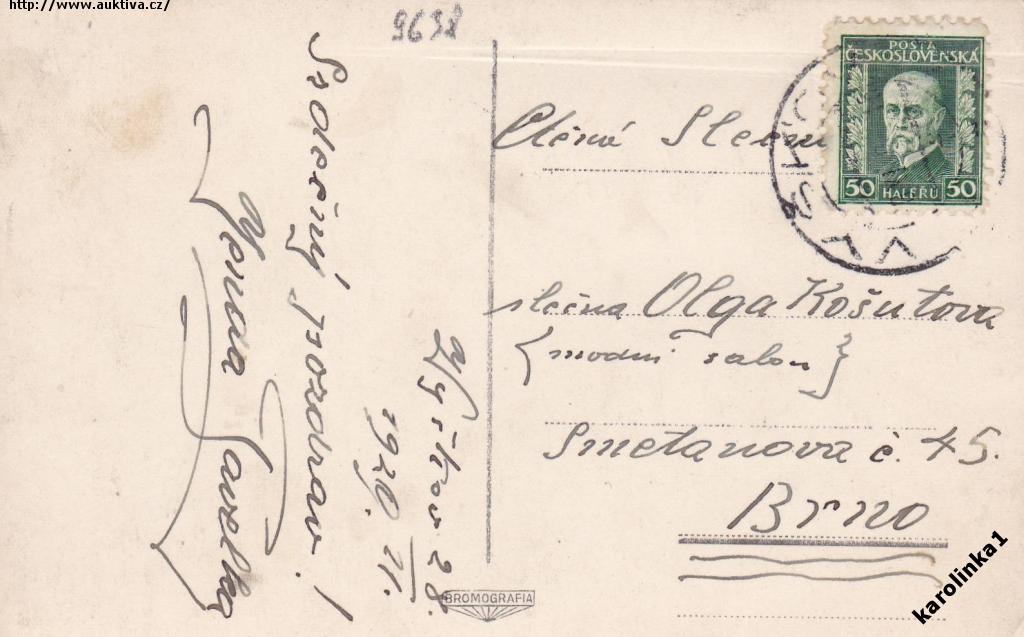 http://www.auktiva.cz/
9638
Srdečný pozdrav!
Vyškov 28.
11.
1929.
POŠTA
ČESKOSLOVENSKÁ
50 HALÉŘŮ 50
VYŠKOV
Ctěná
slečna Olga Košutova
{modní salon}
Smetanova č. 45.
Brno
BROMOGRAFIA
karolinka1